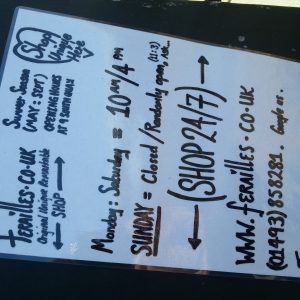 Shop
Window
Here
Summer Season
(MAY : SEPT)
OPENING HOURS
AT 9 SOUTH WALK
FERNILLES.CO.UK
Original Unique Peventable
← SHOP →
Monday : Saturday = 10AM/4PM
SUNDAY = Closed / Randomly open,
(11:3)
← (SHOP 24/7) →
WWW.FERNILLES.CO.UK
(01493) 858281.
Google or.